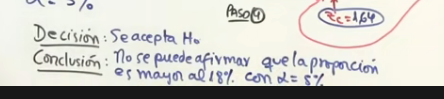 α = 5%
PASO 4
Zc = 1,64
Decisión: Se acepta Ho
Conclusión: No se puede afirmar que la proporción
es mayor al 18% con α = 5%